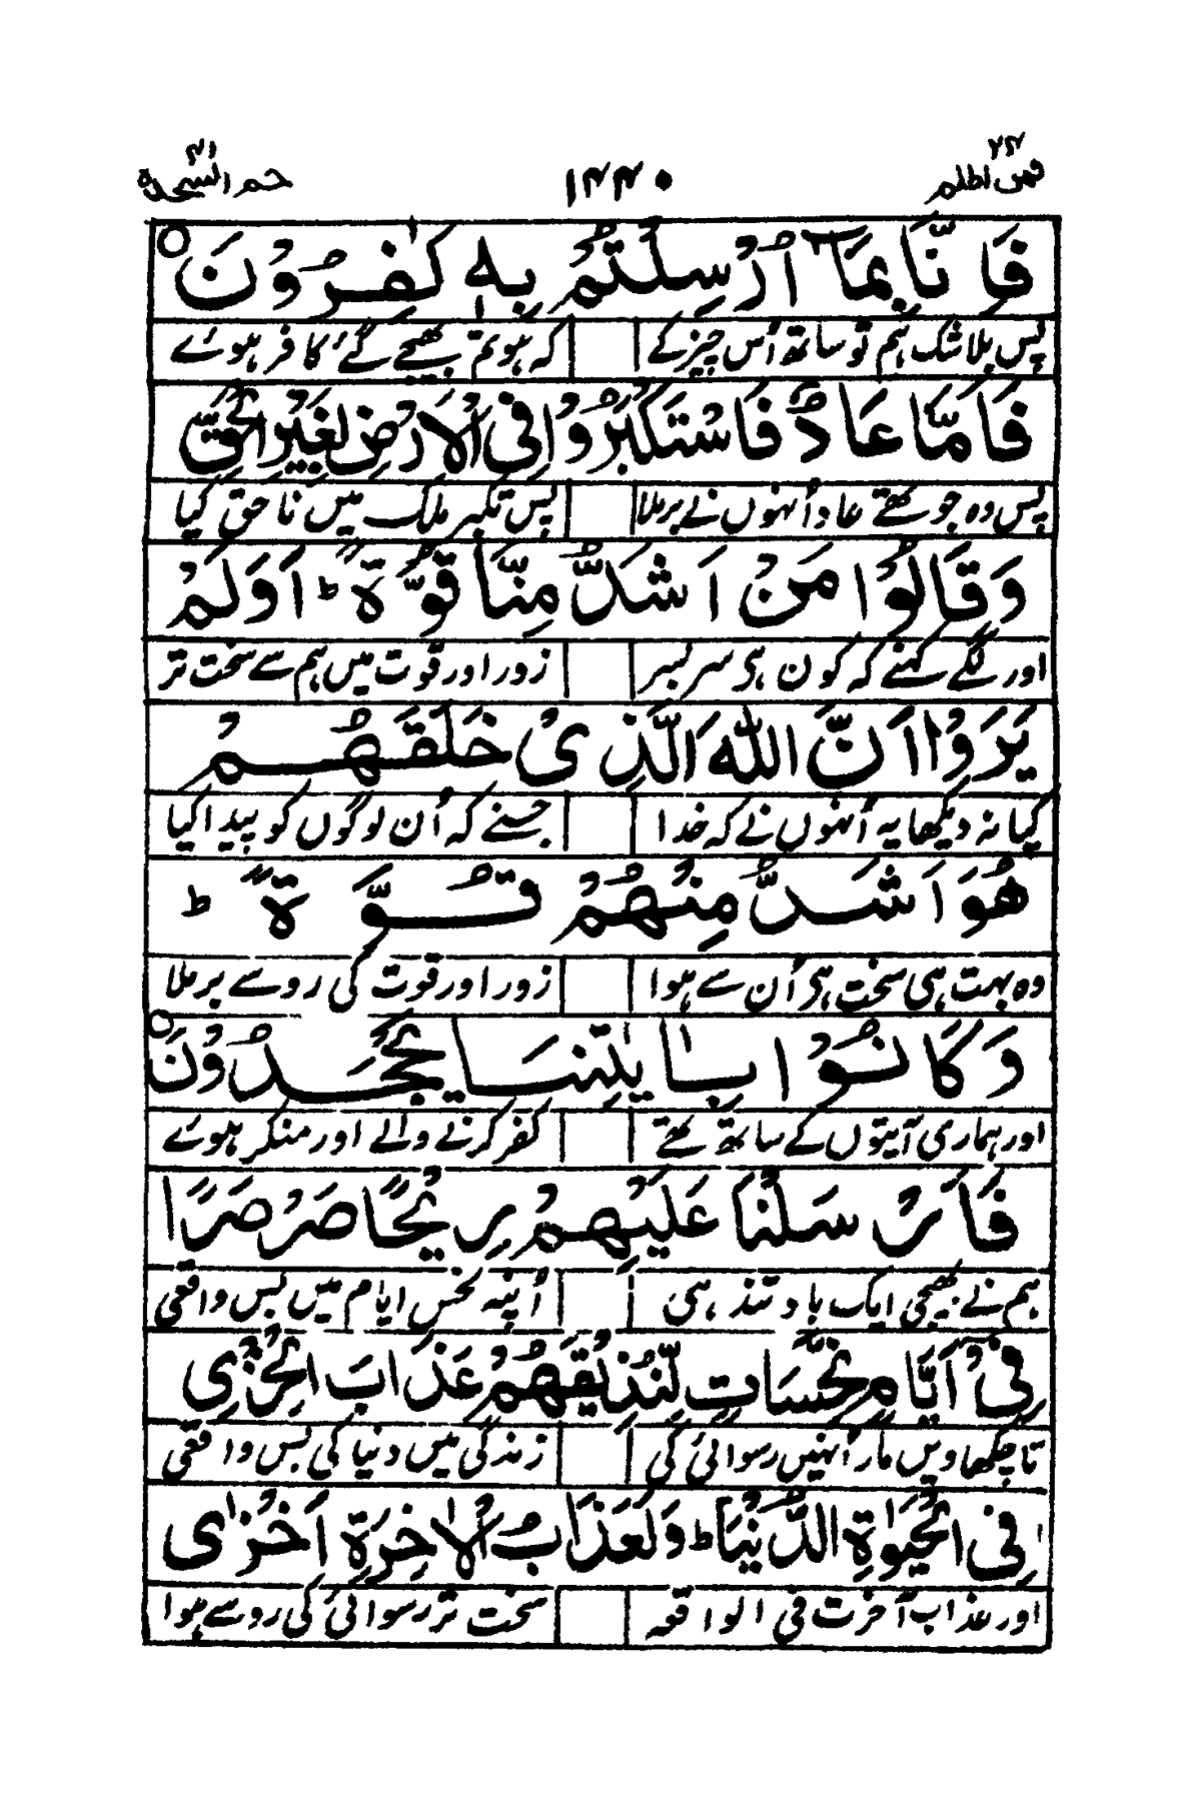 فمن اظلم ۲۴ ۱۴۴۰ حم السجدة ۴۱
فَاِنَّا بِمَآ اُرْسِلْتُمْ بِهٖ كٰفِرُوْنَ ○
پس بلا شک ہم تو ساتھ اُس چیز کے کہ ہو تم بھیجے گئے کافر ہوئے
فَاَمَّا عَادٌ فَاسْتَكْبَرُوْا فِى الْاَرْضِ بِغَيْرِ الْحَقِّ
پس وہ جو تھے عاد اُنہوں نے برملا پس تکبر ملک میں ناحق کیا
وَقَالُوْا مَنْ اَشَدُّ مِنَّا قُوَّةً ؕ اَوَلَمْ
اور لگے کہنے کہ کون ہی سر بسر زور اور قوت میں ہم سے سخت تر
يَرَوْا اَنَّ اللّٰهَ الَّذِىْ خَلَقَهُمْ
کیا نہ دیکھا یہ اُنہوں نے کہ خدا جسنے کہ اُن لوگوں کو پیدا کیا
هُوَ اَشَدُّ مِنْهُمْ قُوَّةً ؕ
وہ بہت ہی سخت ہی اُن سے ہوا زور اور قوت کی رو سے برملا
وَكَانُوْا بِاٰيٰتِنَا يَجْحَدُوْنَ ○
اور ہماری آیتوں کے ساتھ تھے کفر کرنے والے اور منکر ہوئے
فَاَرْسَلْنَا عَلَيْهِمْ رِيْحًا صَرْصَرًا
ہم نے بھیجی ایک باد تند ہی اُپنہ نحس ایام میں بس واقعی
فِىْٓ اَيَّامٍ نَّحِسَاتٍ لِّنُذِيْقَهُمْ عَذَابَ الْخِزْىِ
تا چکھاویں مار اُنہیں رسوائی کی زندگی میں دنیا کی بس واقعی
فِى الْحَيٰوةِ الدُّنْيَا ؕ وَلَعَذَابُ الْاٰخِرَةِ اَخْزٰى
اور عذاب آخرت فی الواقعہ سخت تر رسوائی کی رو سے ہوا